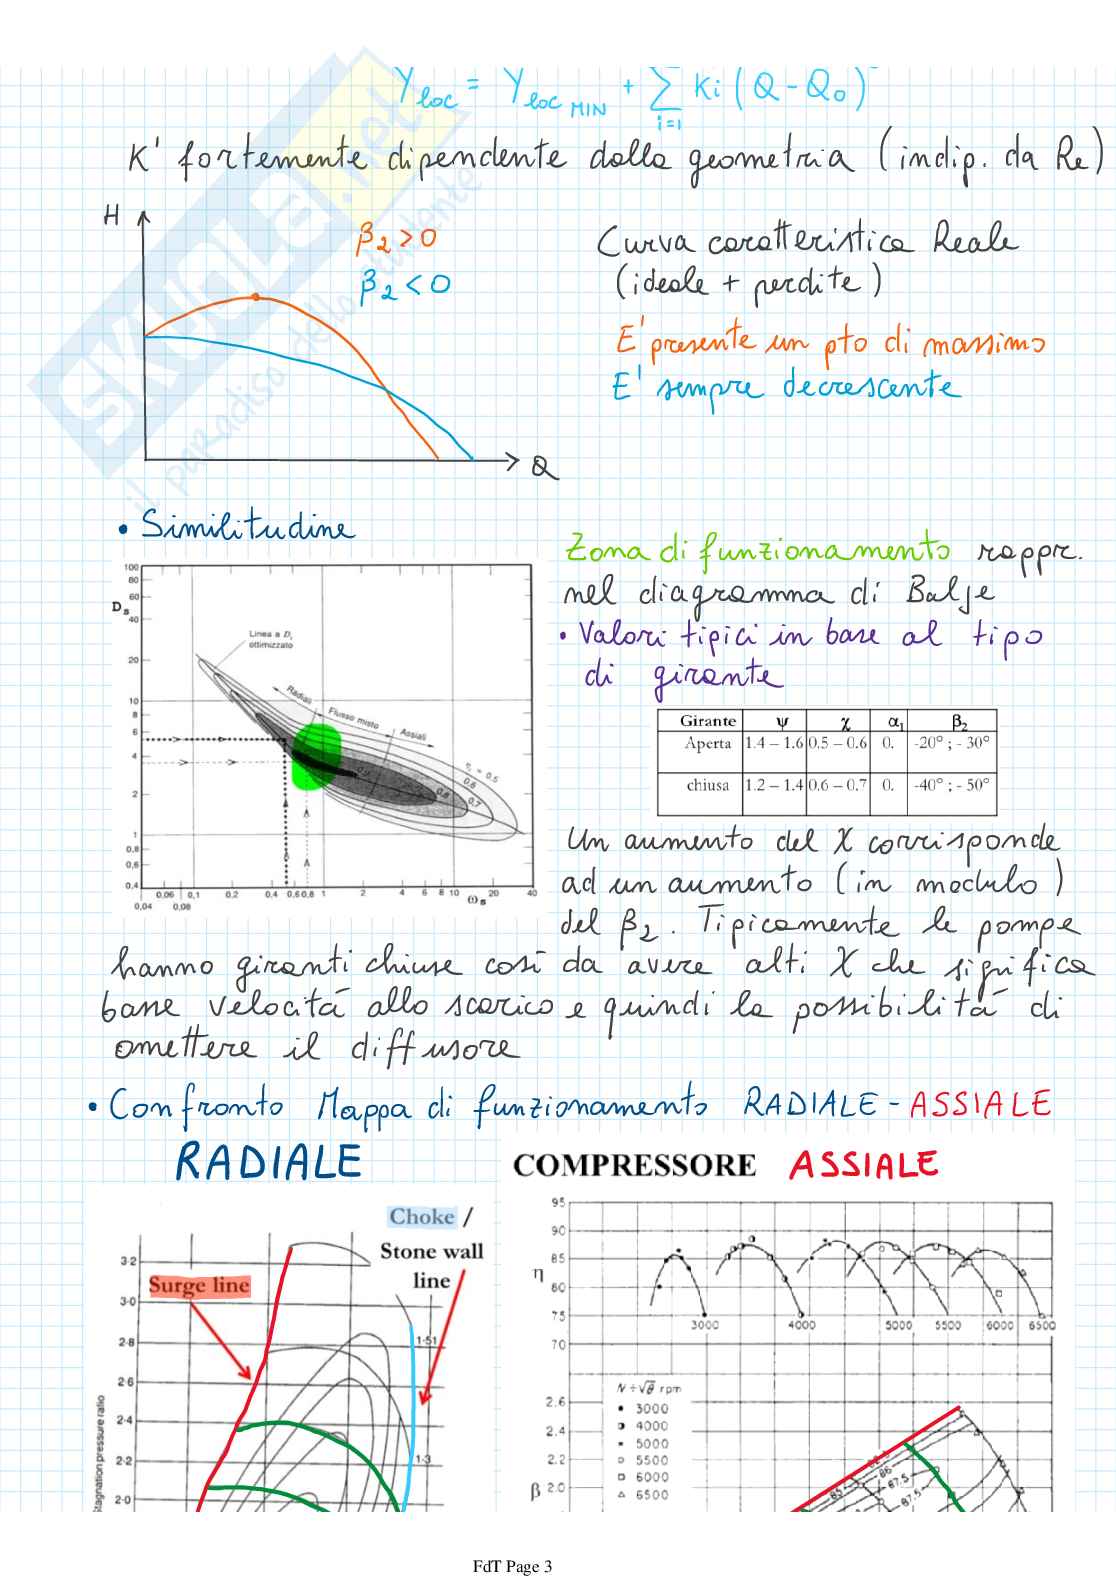 Y loc = Y loc MIN + Σ i=1 Ki (Q - Q0)
K' fortemente dipendente dalla geometria (indip. da Re)
H
β2 > 0
β2 < 0
Q
Curva caratteristica Reale
(ideale + perdite)
E' presente un pto di massimo
E' sempre decrescente
SKUOLA.net
il paradiso dello studente
• Similitudine
Zona di funzionamento rappr.
nel diagramma di Balje
• Valori tipici in base al tipo
di girante
100
80
60
Ds
40
20
10
8
6
4
2
1
0,8
0,6
0,4
Linea a Ds
ottimizzato
Radiali
Flusso misto
Assiali
= 0.5
0.6
0.7
0.8
0.9
0,06 0,1 0,2 0,4 0,6 0,8 1 2 4 6 8 10 20 40
0,04 0,08 ωs
Girante ψ χ α1 β2
Aperta 1.4 – 1.6 0.5 – 0.6 0. -20° ; - 30°
chiusa 1.2 – 1.4 0.6 – 0.7 0. -40° ; - 50°
Un aumento del χ corrisponde
ad un aumento (in modulo)
del β2. Tipicamente le pompe
hanno giranti chiuse così da avere alti χ che significa
basse velocità allo scarico e quindi la possibilità di
omettere il diffusore
• Confronto Mappa di funzionamento RADIALE - ASSIALE
RADIALE
Choke /
Stone wall
line
Surge line
3·2
3·0
2·8
2·6
2·4
2·2
2·0
1·51
1·3
Stagnation pressure ratio
COMPRESSORE ASSIALE
95
90
85
η
80
75
70
3000 4000 5000 5500 6000 6500
N÷√θ rpm
3000
4000
5000
5500
6000
6500
2.6
2.4
2.2
β 2.0
85 86 87.5 87.5
FdT Page 3